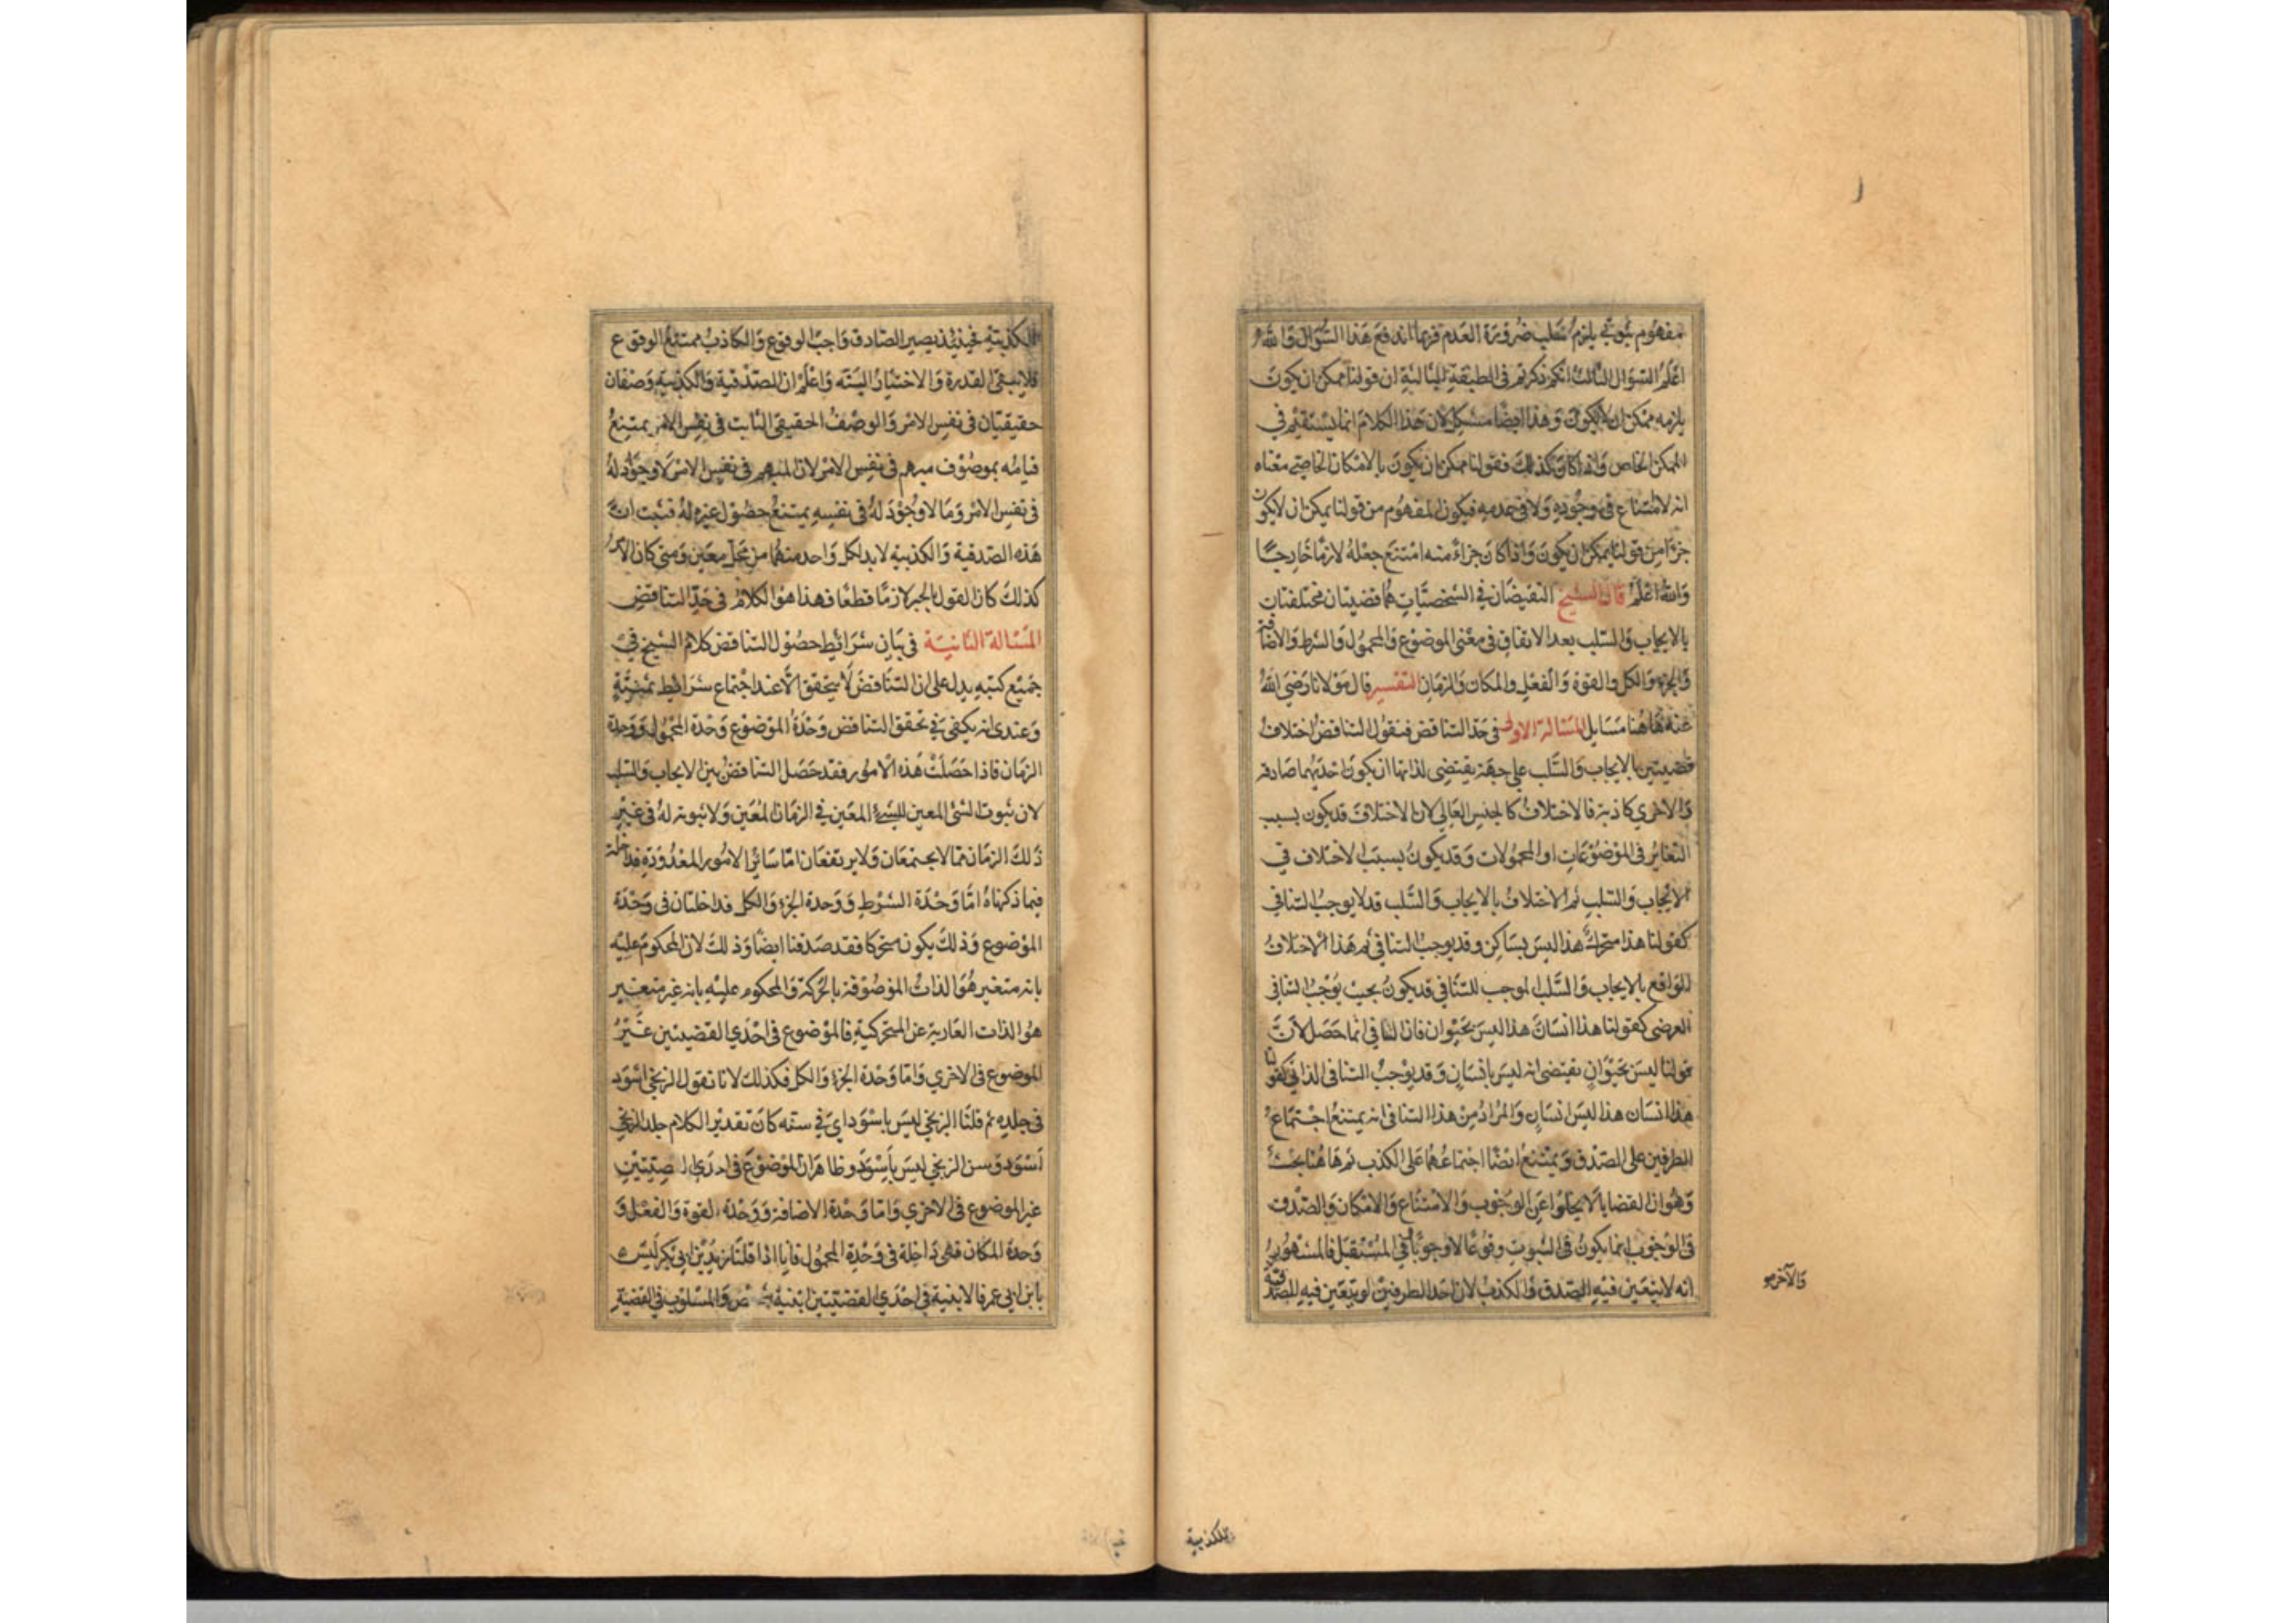 مفهوم ثبوتي يلزم سلب ضرورة العدم فربما اندفع هذا السؤال والله
اعلم السؤال الثالث انكم ذكرتم في الطبقة الثالثة ان قولنا ممكن ان يكون
يلزمه ممكن ان لا يكون وهذا ايضا مشكل لان هذا الكلام انما يستقيم في
الممكن الخاص واذا كان كذلك فقولنا ممكن ان يكون بالامكان الخاصي معناه
انه لا امتناع في وجوده ولا في عدمه فيكون المفهوم من قولنا يمكن ان لا يكون
جزءا من قولنا يمكن ان يكون واذا كان جزاء منه امتنع جعله لازما خارجيا
والله اعلم قال الشيخ النقيضان في الشخصيات هما قضيتان مختلفتان
بالايجاب والسلب بعد الاتفاق في معنى الموضوع والمحمول والشرط والاضافة
والجزء والكل والقوة والفعل والمكان والزمان التفسير قال مولانا رضي الله
عنه هاهنا مسايل المسالة الاولى في حد التناقض فنقول التناقض اختلاف
قضيتين بالايجاب والسلب على جهة يقتضى لذاتها ان يكون احديهما صادقه
والاخري كاذبة فالاختلاف كالجنس العالي لان الاختلاف قد يكون بسبب
التغاير في الموضوعات او المحمولات وقد يكون بسبب الاختلاف في
الايجاب والسلب ثم الاختلاف بالايجاب والسلب قد لا يوجب التنافي
كقولنا هذا متحرك هذا ليس بساكن وقد يوجب التنافي ثم هذا الاختلاف
الواقع بالايجاب والسلب الموجب للتنافي قد يكون بحيث يوجب التنافي
العرضى كقولنا هذا انسان هذا ليس بحيوان فان التنافي انما حصل لان
قولنا ليس بحيوان يقتضى انه ليس بانسان وقد يوجب التنافى الذاتي كقولنا
هذا انسان هذا ليس انسان والمراد من هذا التنافى انه يمتنع اجتماع
الطرفين على الصدق ويمتنع ايضا اجتماعهما على الكذب ثم هاهنا بحث
وهو ان القضايا لا يخلوا عن الوجوب والامتناع والامكان والصدق
في الوجوب انما يكون في الثبوت وقوعا لا وجوبا في المستقبل فالمشهور
انه لا يتعين فيه الصدق والكذب لان احد الطرفين لو يتعين فيه للصدقية
والآخر
للكذبية
للكذبية فحينئذ يصير الصادق واجب الوقوع والكاذب ممتنع الوقوع
فلا يبقى القدرة والاختيار البتة واعلم ان الصدقية والكذبية وصفان
حقيقيان في نفس الامر والوصف الحقيقى الثابت في نفس الامر يمتنع
قيامه بموصوف مبهم في نفس الامر لان المبهم في نفس الامر لا وجود له
في نفس الامر وما لا وجود له في نفسه يمتنع حصول غيره له فثبت ان
هذه الصدقية والكذبية لا بد لكل واحد منهما من محل معين ومتى كان الامر
كذلك كان القول بالجبر لازما قطعا فهذا هو الكلام في حد التناقض
المسالة الثانية في بيان شرائط حصول التناقض كلام الشيخ في
جميع كتبه يدل على ان التناقض لا يتحقق الا عند اجتماع شرائط ثمنية
وعندى انه يكفي في تحقق التناقض وحدة الموضوع وحدة المحمول ووحدة
الزمان فاذا حصلت هذه الامور فقد حصل التناقض بين الايجاب والسلب
لان ثبوت الشئ المعين للشئ المعين في الزمان المعين ولا ثبوته له في غير
ذلك الزمان مما لا يجتمعان ولا يرتفعان اما سائر الامور المعدودة فداخلة
فيما ذكرناه اما وحدة الشرط ووحدة الجزء والكل فداخلتان في وحدة
الموضوع وذلك يكون متحركا فقد صدقنا ايضا وذلك لان المحكوم عليه
بانه متغير هو الذات الموصوفة بالحركة والمحكوم عليه بانه غير متغير
هو الذات العارية عن المتحركية فالموضوع في احدي القضيتين غير
الموضوع في الاخري واما وحدة الجزء والكل فكذلك لانا نقول الزنجي اسود
في جلده ثم قلنا الزنجي ليس باسود اي في سنه كان تقدير الكلام جلد الزنجي
اسود وسن الزنجي ليس باسود وظاهر ان الموضوع في احدي القضيتين
غير الموضوع في الاخري واما وحدة الاضافة ووحدة القوة والفعل و
وحدة المكان فهى داخلة في وحدة المحمول فانا اذا قلنا زيد بن ابي بكر ليس
بابن ابي عمر فالابنية في احدي القضيتين ابنية والمسلوب في القضية